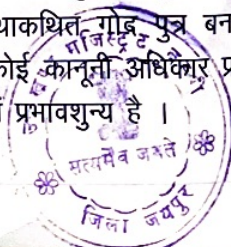 थाकथित गोद पुत्र बन
कोई कानूनी अधिकार प्र
प्रभावशुन्य है ।
मजिस्ट्रेट
सत्यमेव जयते
जिला जयपुर